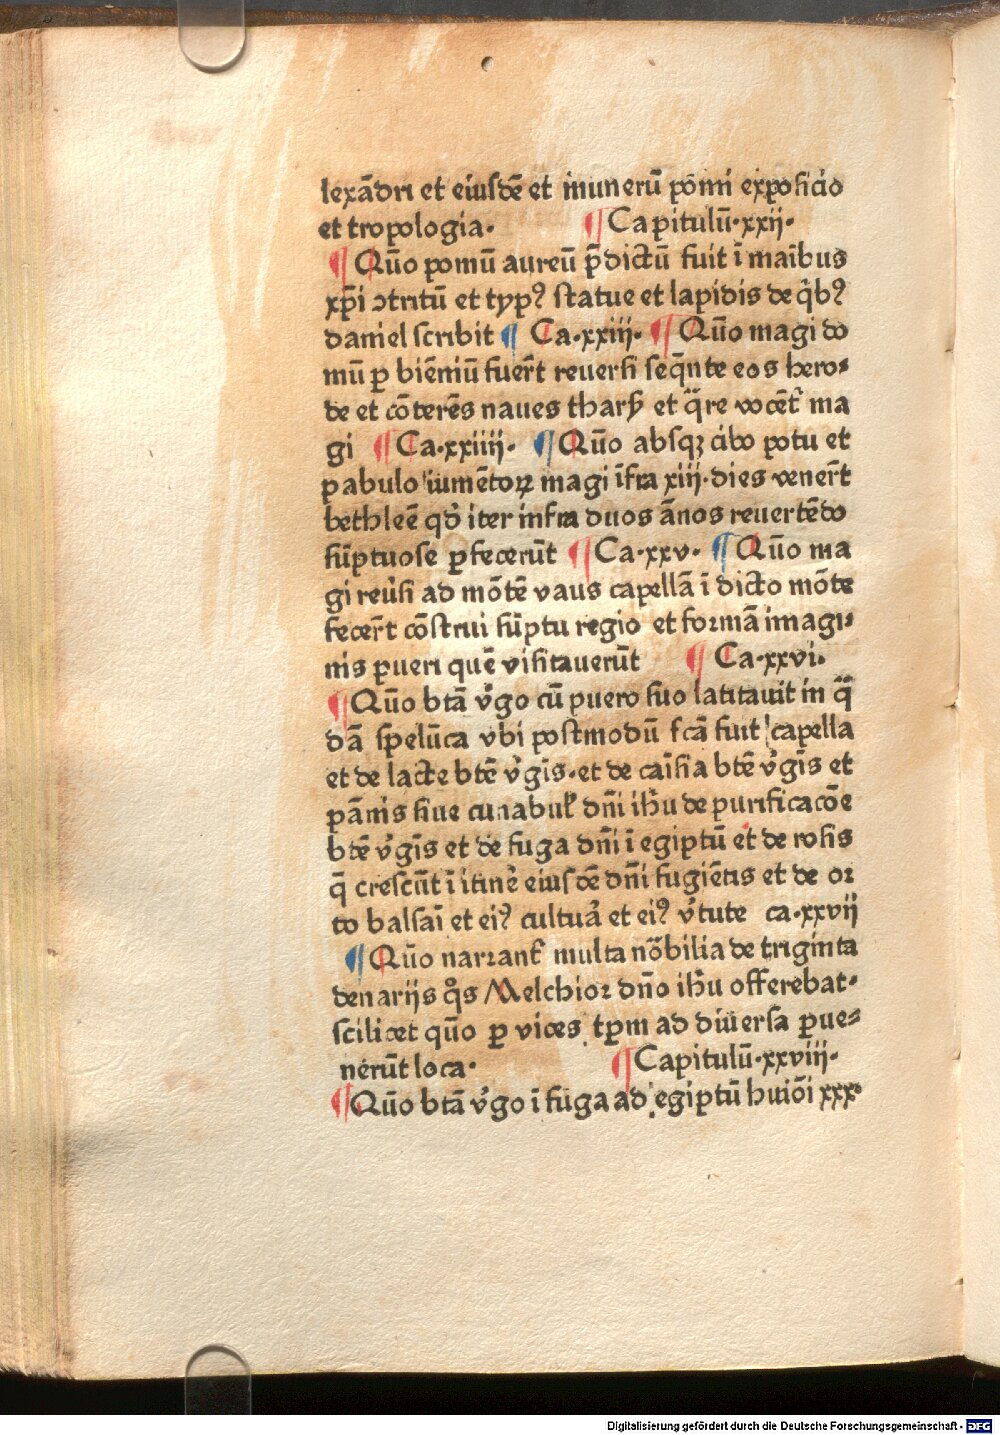 lexādri et eiusdē et munerū pōmi exposicio
et tropologia. ¶ Capitulū.xxij.
¶ Quō pomū aureū p̄dictū fuit ī maībus
xp̄i ↄtritū et typꝰ statue et lapidis de q̄bꝰ
daniel scribit ¶ Ca.xxiij. ¶ Quō magi do
mū ꝑ biēniū fuer̄t reuersi seq̄nte eos hero-
de et cōterēs naues tharẜ et q̄re vocēt᷑ ma
gi ¶ Ca.xxiiij. ¶ Quō absqꝫ cibo potu et
pabulo iumētoꝝ magi īfra xiij.dies vener̄t
bethleē qd̓ iter infra duos ānos reuertēdo
sūptuose ꝑfecerūt ¶ Ca.xxv. ¶ Quō ma
gi reu̓si ad mōtē vaus capellā ī dicto mōte
fecer̄t cōstrui sūptu regio et formā imagi-
nis pueri quē visitauerūt ¶ Ca.xxvi.
¶ Quō btā v̓go cū puero suo latitauit in q̄
dā spelūca vbi postmodū fcā fuit capella
et de lacte btē v̓gīs.et de caīsia btē v̓gīs et
pānis siue cunabuł dn̄i ih̄u de purificacōe
btē v̓gīs et de fuga dn̄i ī egiptū et de rosis
q̄ crescūt ī itinē eiusdē dn̄i fugiētis et de or
to balsaī et eiꝰ cultua̓ et eiꝰ v̓tute ca.xxvij
¶ Quō narrant᷑ multa nōbilia de triginta
denarijs qͦs Melchior dn̄o ih̄u offerebat.
scilicet quō ꝑ vices tp̄m ad diuersa ꝑue-
nerūt loca. ¶ Capitulū.xxviij.
¶ Quō btā v̓go ī fuga ad egiptū huiōi xxx.
Digitalisierung gefördert durch die Deutsche Forschungsgemeinschaft - DFG